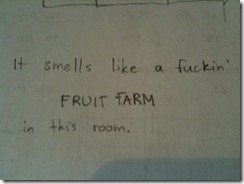 It smells like a fuckin'
FRUIT FARM
in this room.